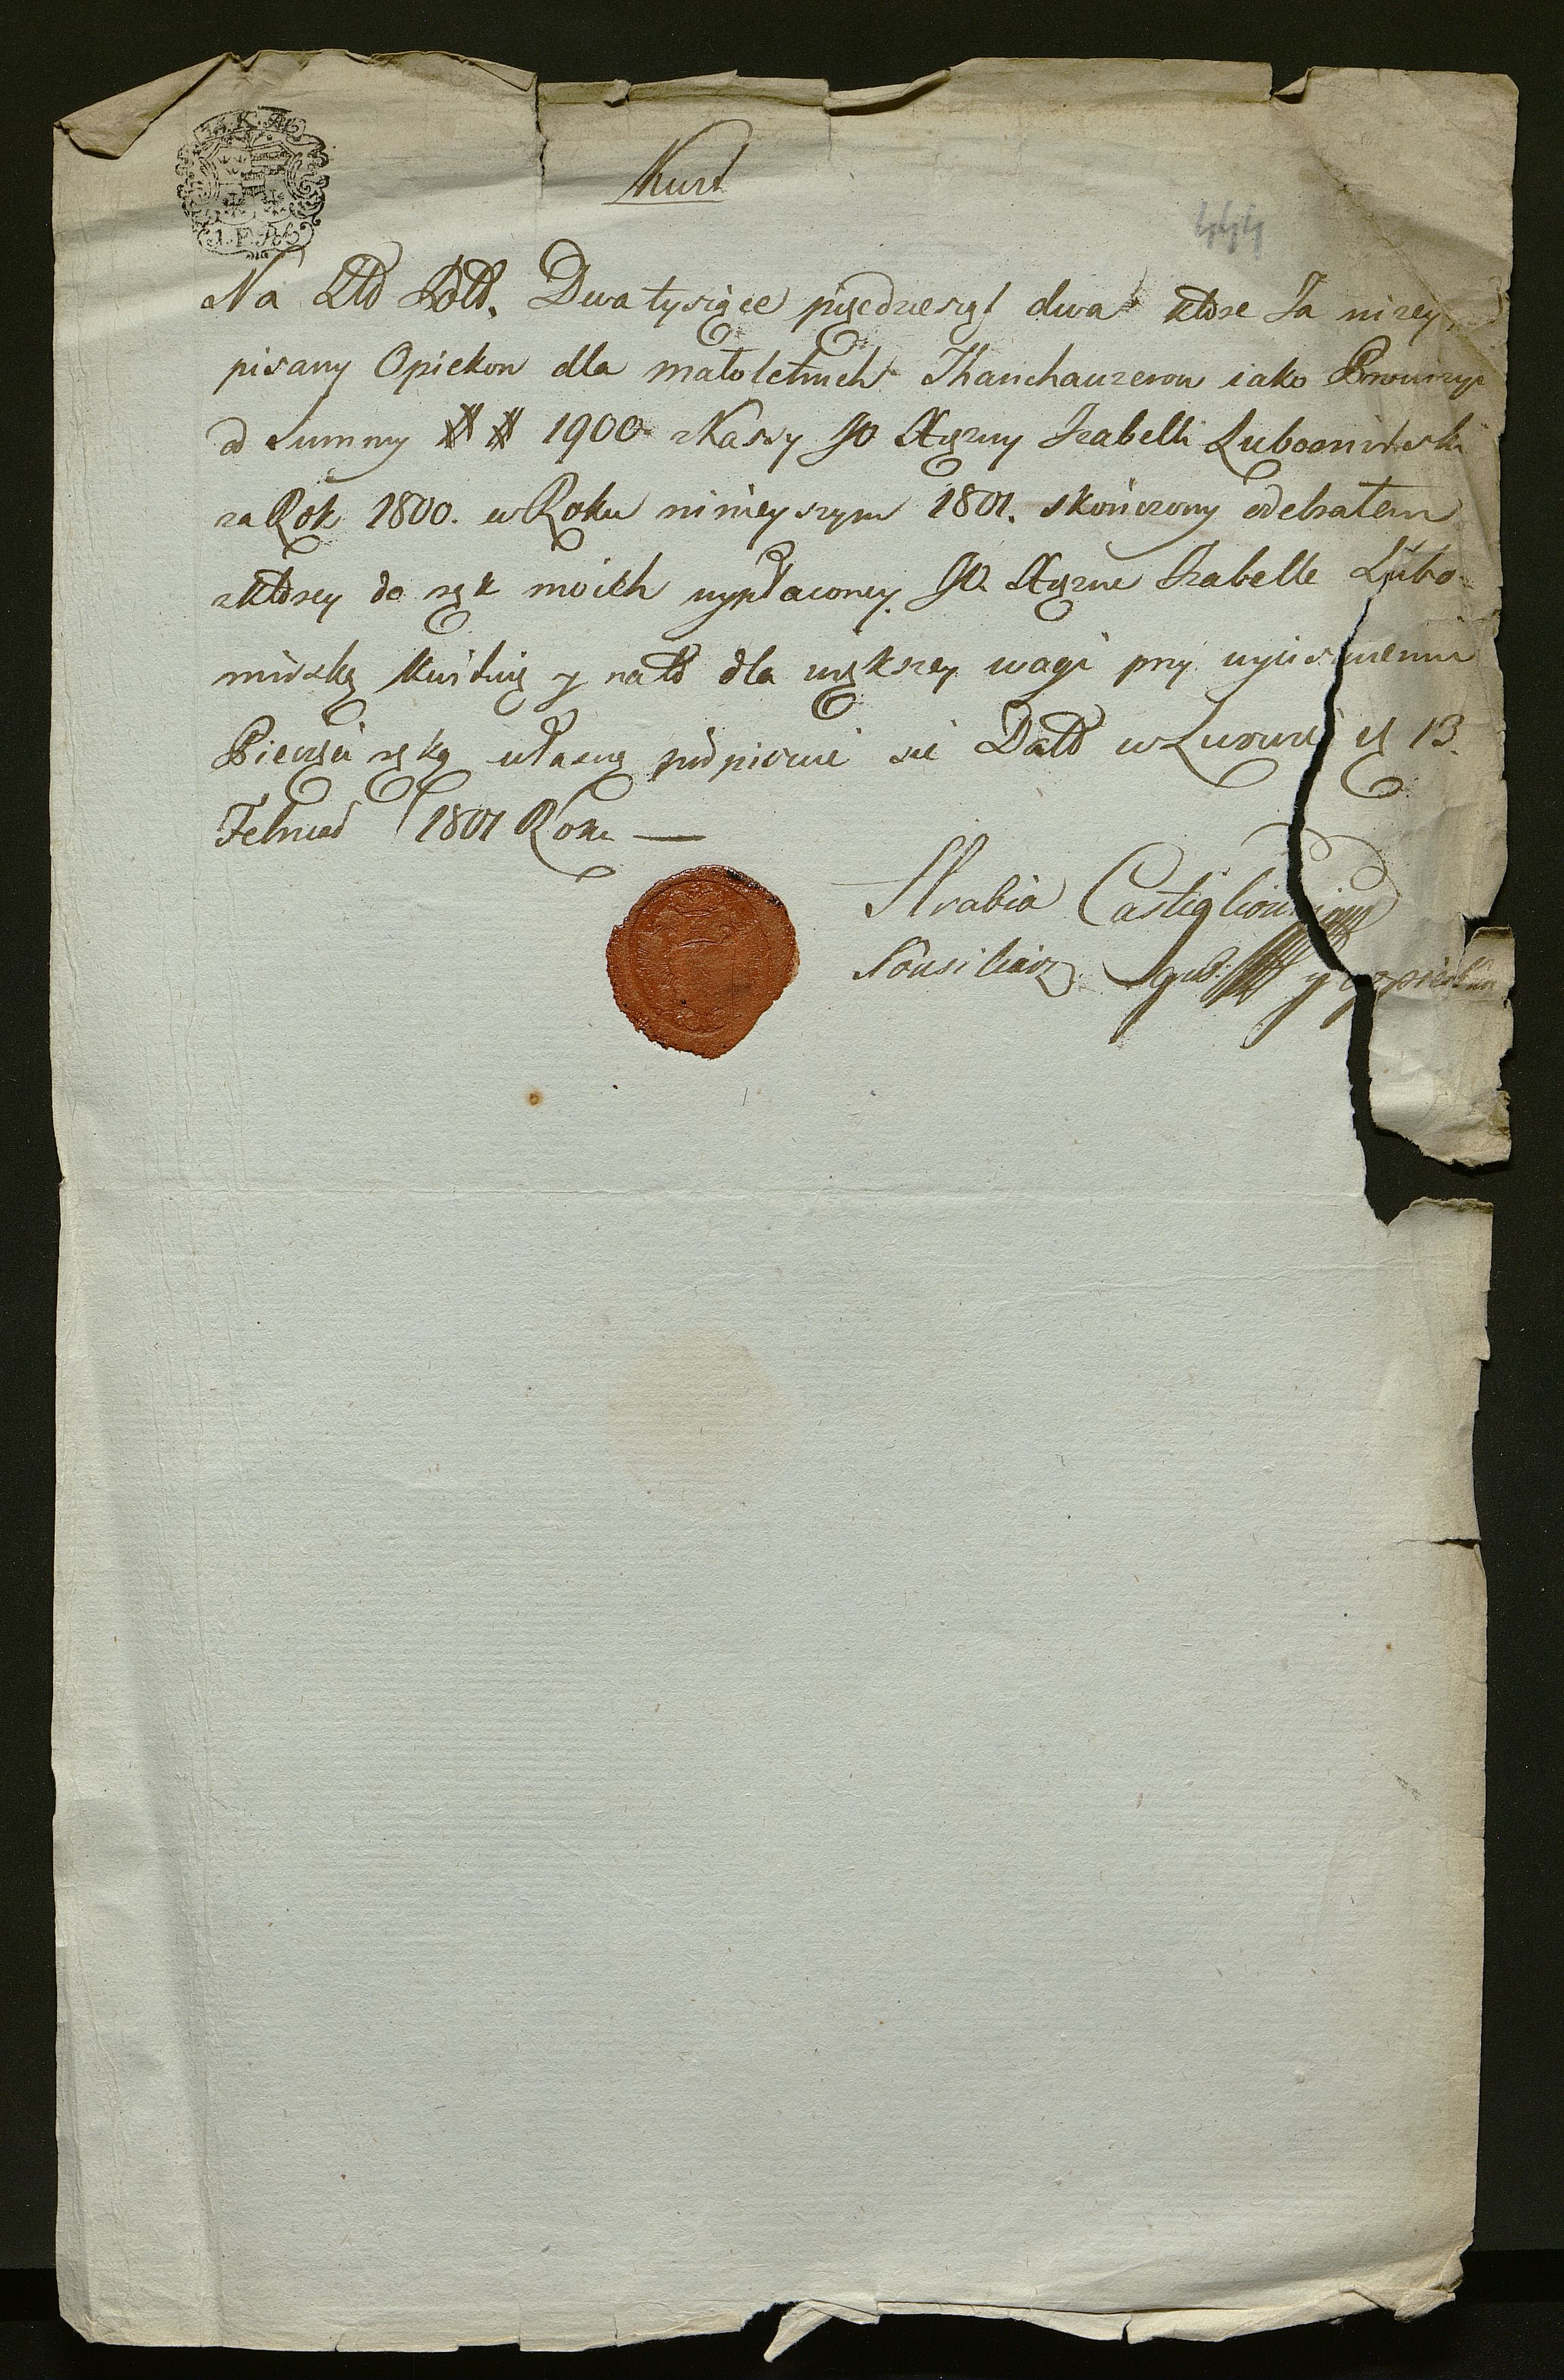 Kwit
Na Złt Polt. Dwa tysiące pięcdziesiąt dwa które Ja niżey
pisany Opiekon dla małoletnich Thanchauzerow iako Prowizyi
od Summy ## 1900 z Kassy JO Xiężny Izabelli Lubomirski
za Rok 1800. w Roku ninieyszym 1801. skończony odebrałem
z którey do rąk moich wypłaconey. JO. Xiężne Izabelle Lubo-
mirską kwituię y na to dla większey wagi przy wyciśnieniu
Pieczęci ręką własną podpisuie sie Datt w Lwowie d 13.
Februar 1801 Roku —
Hrabia Castiglioni
Konsiliarz gub. y opiekun